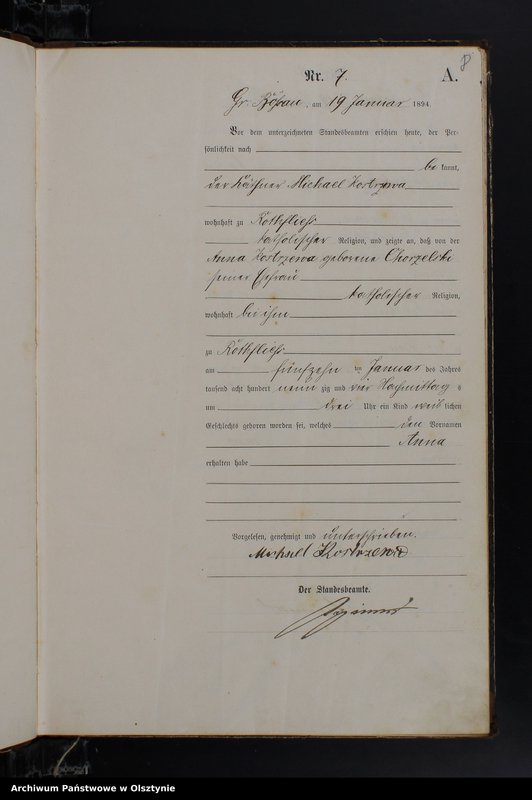 8
Nr. 7. A.
Gr. Bößau, am 19 Januar 1894
Vor dem unterzeichneten Standesbeamten erschien heute, der Per-
sönlichkeit nach
be kannt,
der Käthner Michael Kostrzewa
wohnhaft zu Rothfließ
katholischer Religion, und zeigte an, daß von der
Anna Kostrzewa geborene Chorzelski
seiner Ehefrau
katholischer Religion,
wohnhaft bei ihm
zu Rothfließ
am fünfzehn ten Januar des Jahres
tausend acht hundert neun zig und vier Nachmittag s
um drei Uhr ein Kind weib lichen
Geschlechts geboren worden sei, welches den Vornamen
Anna
erhalten habe
Vorgelesen, genehmigt und unterschrieben.
Michael Kostrzewa
Der Standesbeamte.
Archiwum Państwowe w Olsztynie